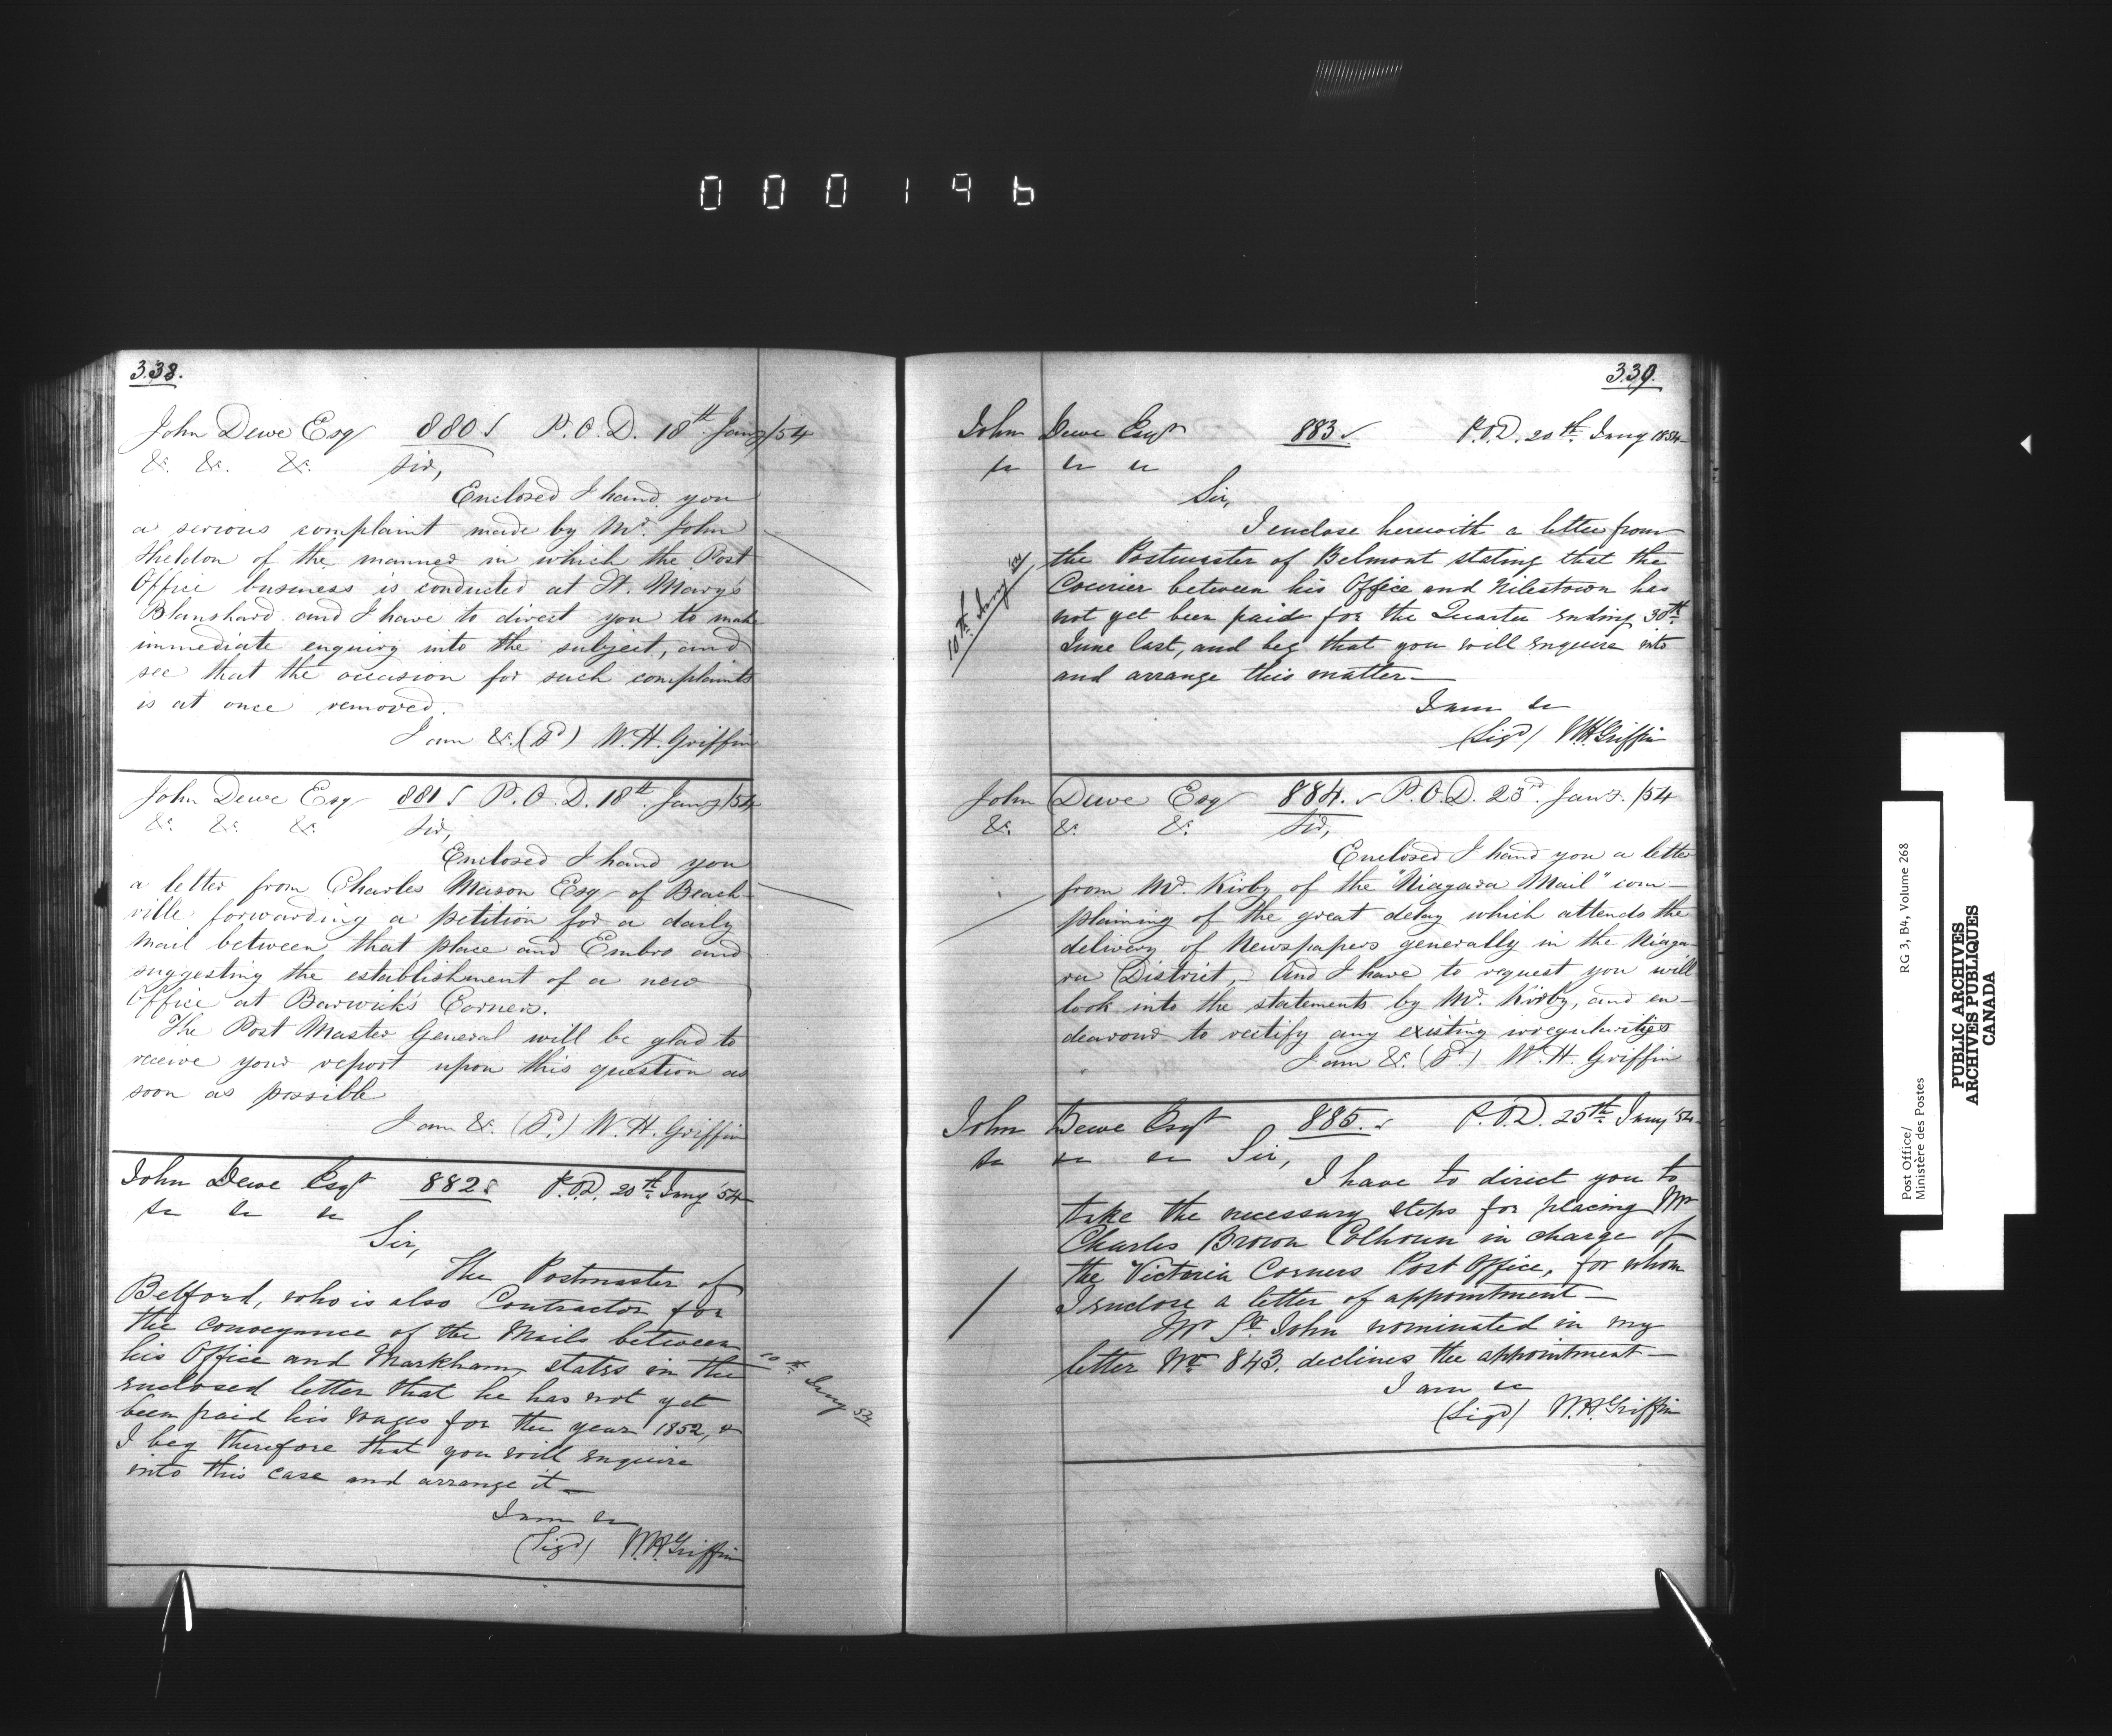 000196
338.
John Dewe Esqr 880 P.O.D. 18th Jany/54
&c. &c. &c. Sir,
Enclosed I hand you
a serious complaint made by Mr. John
Sheldon of the manner in which the Post
Office business is conducted at St. Mary's
Blanshard and I have to direct you to make
immediate enquiry into the subject, and
see that the occasion for such complaints
is at once removed.
I am &c. (Sd) W. H. Griffin
John Dewe Esqr 881 P.O.D. 18th Jany/54
&c. &c. &c. Sir,
Enclosed I hand you
a letter from Charles Mason Esqr of Beach-
ville forwarding a petition for a daily
Mail between that place and Embro and
suggesting the establishment of a new
Office at Barwick's Corners.
The Post Master General will be glad to
receive your report upon this question as
soon as possible
I am &c. (Sd.) W. H. Griffin
John Dewe Esqr 882 P.O.D. 20th Jany '54
&c &c &c
Sir,
The Postmaster of
Belford, who is also Contractor for
the conveyance of the Mails between
his Office and Markham, states in the
enclosed letter that he has not yet
been paid his wages for the year 1852, &
I beg therefore that you will enquire
into this case and arrange it—
I am &c
(Sigd) W.H. Griffin
10th Jany 54
339.
John Dewe Esqr 883 P.O.D. 20th Jany 1854
&c &c &c
Sir,
I enclose herewith a letter from
the Postmaster of Belmont stating that the
Courier between his Office and Nilestown has
not yet been paid for the Quarter ending 30th
June last, and beg that you will enquire into
and arrange this matter—
I am &c
(Sigd) W.H. Griffin
10th Jany 54
John Dewe Esqr 884. P.O.D. 23rd Jany. /54
&c. &c. &c. Sir,
Enclosed I hand you a letter
from Mr. Kirby of the "Niagara Mail" com-
plaining of the great delay which attends the
delivery of Newspapers generally in the Niaga-
ra District,— And I have to request you will
look into the statements by Mr. Kirby, and en-
deavour to rectify any existing irregularities
I am &c. (Sd.) W. H. Griffin
John Dewe Esqr 885. P.O.D. 25th Jany '54
&c &c &c Sir,
I have to direct you to
take the necessary steps for placing Mr
Charles Brown Colhoun in charge of
the Victoria Corners Post Office, for whom
I enclose a letter of appointment—
Mr St. John nominated in my
letter No. 843. declines the appointment—
I am &c
(Sigd) W.H. Griffin
Post Office/ RG 3, B4, Volume 268
Ministère des Postes
PUBLIC ARCHIVES
ARCHIVES PUBLIQUES
CANADA